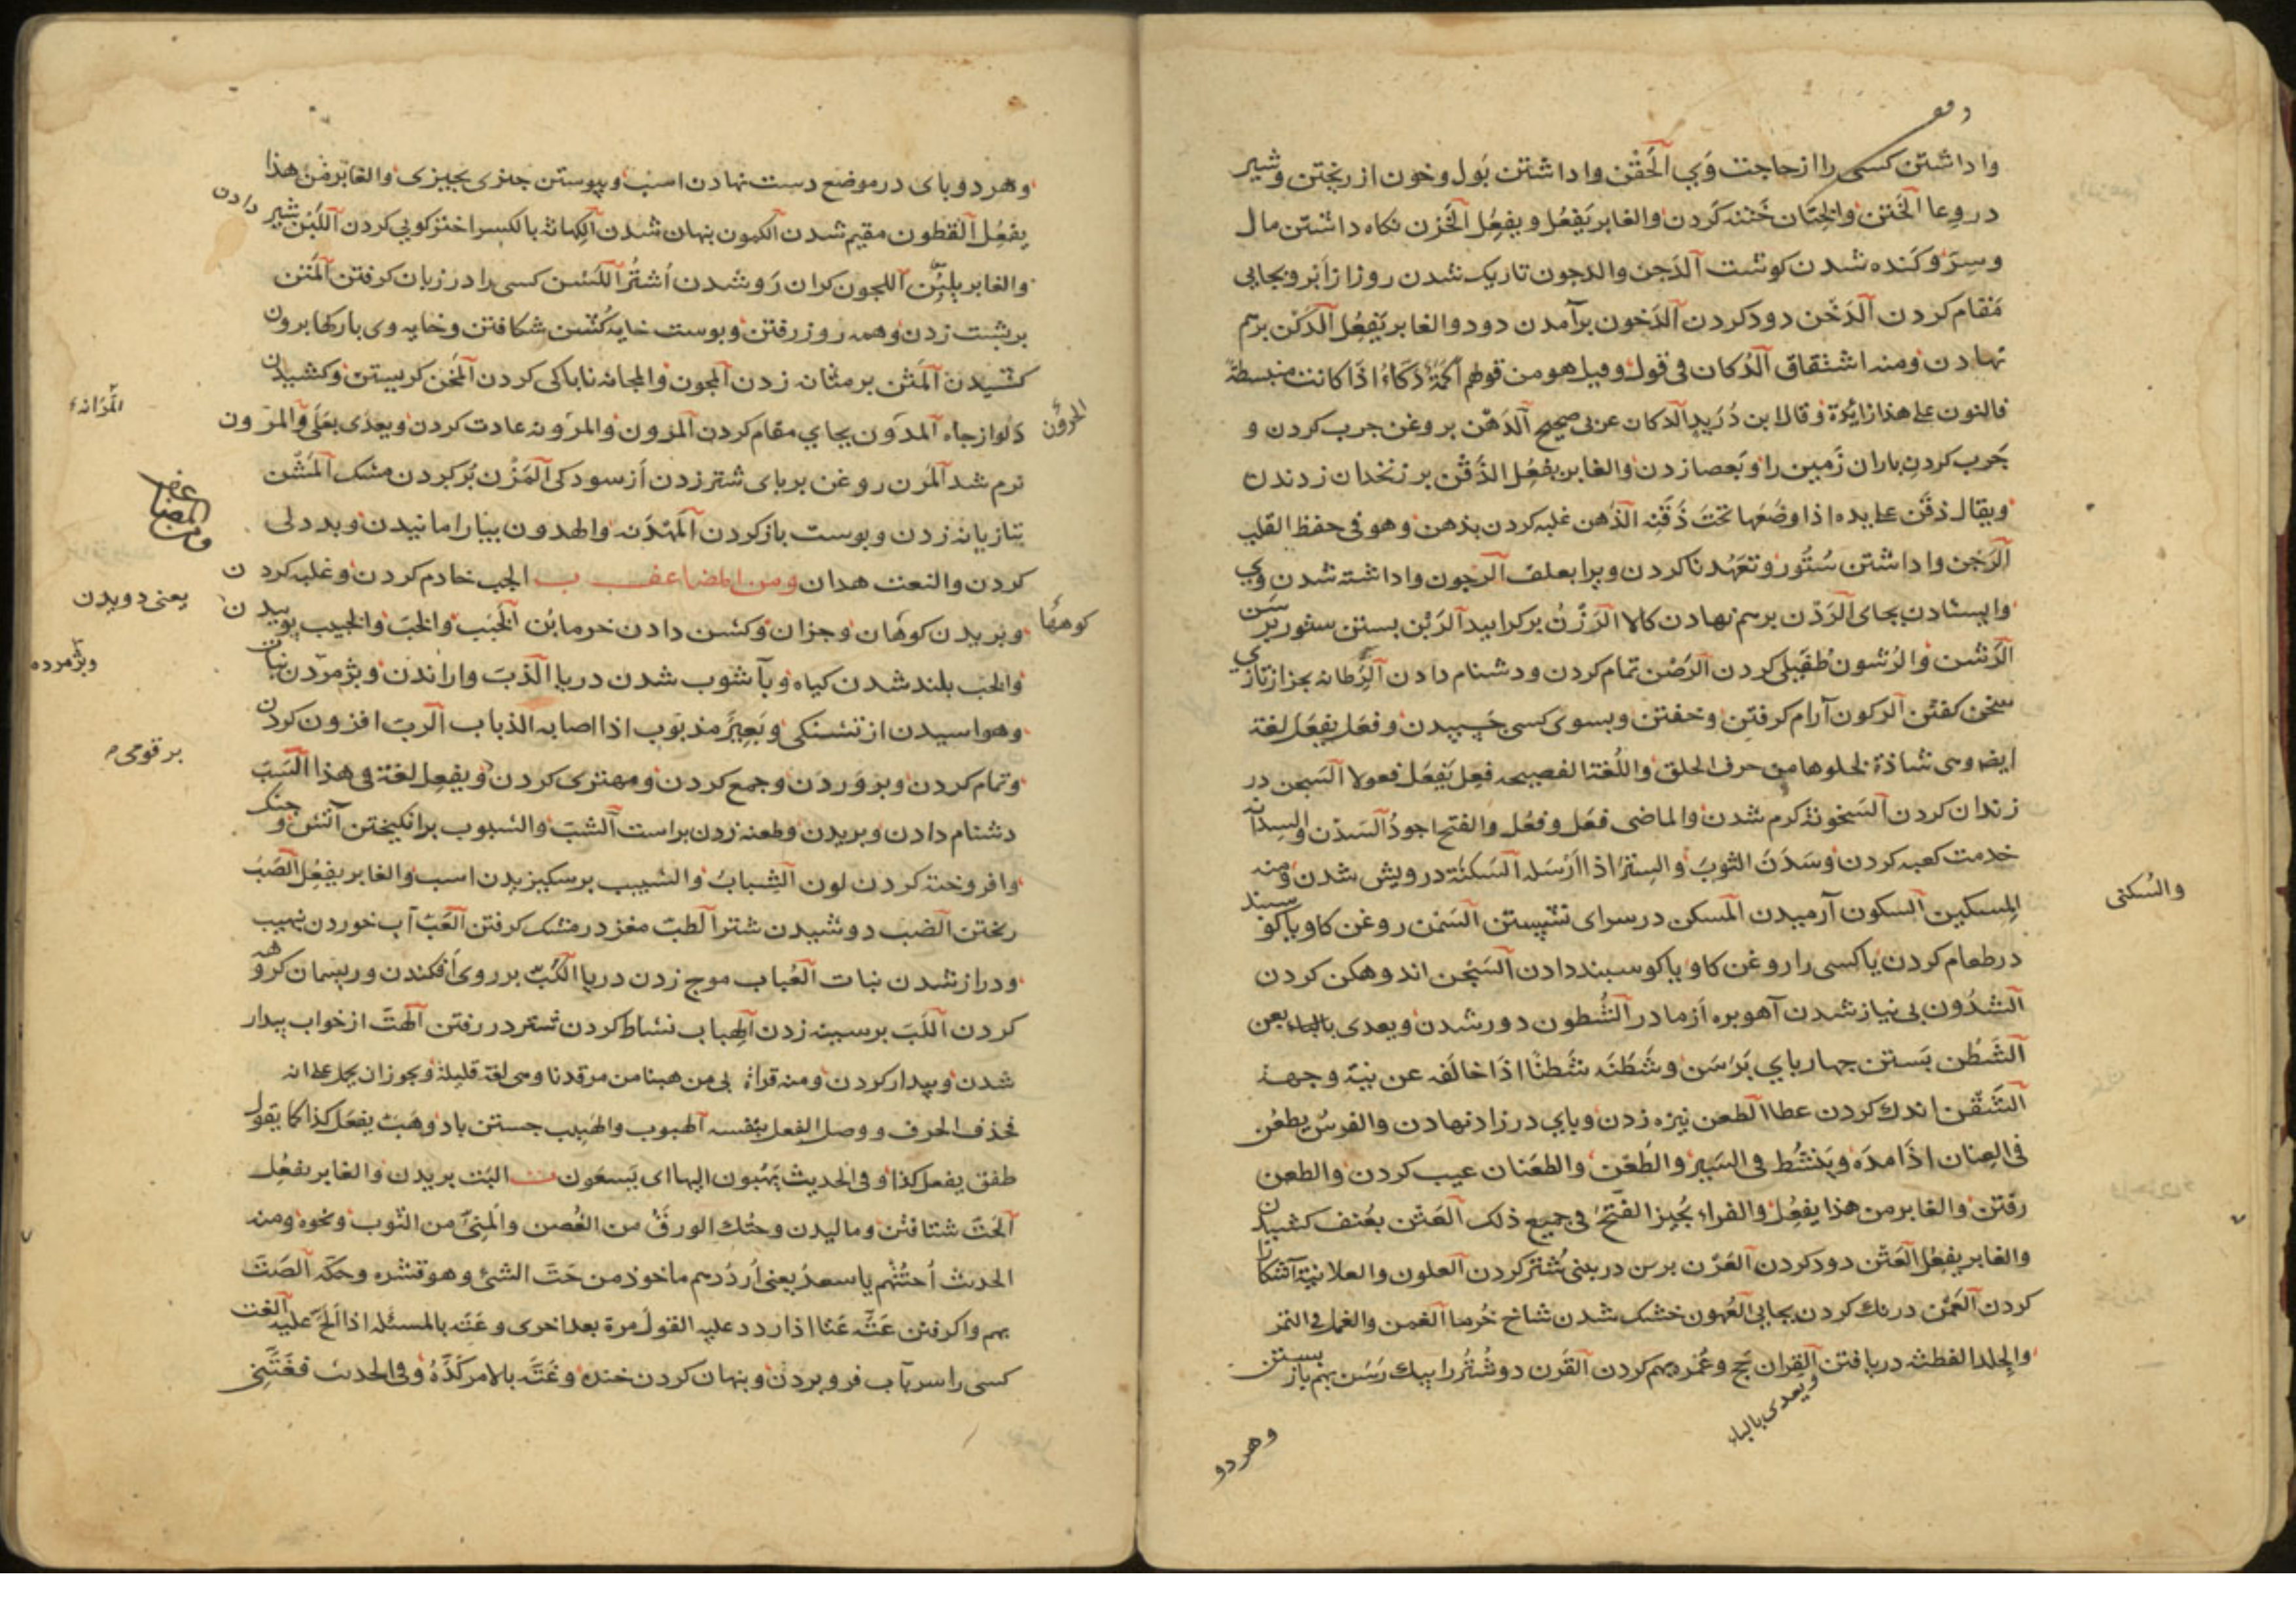 واداشتن کسی را از حاجت وَی الحَقْن واداشتن بَول و خون از ریختن و شیر
در وعا الخَتن والخِتان خَتنه کَردن والغابر یَفعُل ویفعِل الخَزن نکاه داشتن مال
وسِرّ و کَنده شدن کوشت الدَجن والدجون تاریک شدن روز از اَبر و بجایی
مَقام کردن الدَخن دود کردن الدَخون برآمدن دود والغابر یَفعُل الدَکن برهم
نهادن ومنه اشتقاق الدُکان فی قول وقیل هو من قولهم اَکَمَةٌ دَکّاءُ اذا کانت منبسطة
فالنون علی هذا زائدة وقال ابن دُرَید الدکان عربی صحیح الدَهن بروغن چرب کردن و
چَرب کردن باران زَمین را و بَعصا زدن والغابر یفعُل الذَقن بر زنخدان زدن
ویقال ذقَن علی یده اذا وضَعها تحتَ ذَقَنِه الذَهن غلبه کردن بذهن وهو فی حفظ القلب
الرَجن واداشتن سُتُور و تعهّد ناکردن ویرا بعلف الرجون واداشته شدن وی
وایستادن بجای الرَدن برهم نهادن کالا الرَزن برکراییدن الرَسَن بستن ستور بر سَن
الرَشن والرُشون طُفَیلی کردن الرَصن تمام کردن و دشنام دادن الرَطانه بجز از تازی
سخن کفتن الرکون آرام کرفتن وخفتن وبسوی کسی چسپیدن وفَعَل یفعَل لغة
ایضا وهی شاذة لخلوها من حرف الحلق واللُغة الفصیحه فعِل یَفعَل فعولا السَجن در
زندان کردن السَخونة کرم شدن والماضی فعَل وفعُل والفتح اجودُ السَدن والسِدانه
خدمت کعبه کردن وسَدَن الثوبَ والسِترَ اذا ارسَله السَکنة درویش شدن ومنه
المِسکین السکون آرمیدن المسکن در سرای نشیستن السَمن روغن کاو یا کوسبند
در طعام کردن یا کسی را روغن کاو یا کوسبند دادن السَجن اندوهکن کردن
الشدُون بی نیاز شدن آهو بره از مادر الشُطون دور شدن ویعدی بالباء بعن
الشَطن بَستن چهارپای بَرَسَن وشَطَنَه شَطنًا اذا خالَفه عن نیّة وجهه
الشَقن اندک کردن عطا الطعن نیزه زدن و پای در زاد نهادن والفرسُ یطعُن
فی العِنان اذا مدَه ویَنشُط فی السَیر والطَعن والطعَنان عیب کردن والطعن
رفتن والغابر من هذا یفعُل والفراء یُجیز الفتح فی جمیع ذلک العَثن بعُنف کشیدن
والغابر یفعِل العَثن دود کردن العَرن برس در بینی شُتر کردن العلون والعلانیة آشکارا
کردن العَمن درنک کردن بجایی العُهون خشک شدن شاخ خُرما الغمن والغمل فی التمر
والجلد الفطنه دریافتن القِران حَج وعُمره بهم کردن القَرن دو شُتُر را بیک رَسَن بهم باز بستن
ویعدی بالباء
وهر دو
والسُکنی
وهر دو پای در موضع دست نهادن اسب وپیوستن چیزی بچیزی والغابر مِن هذا
یفعُل القطون مقیم شدن الکمون پنهان شدن الکِهانه بالکسر اخترکویی کردن اللَبن شیر دادن
والغابر یلبِن اللجون کران رَو شدن اُشتُر اللَسَن کسی را در زبان کرفتن المَتن
بر پشت زدن وهمه روز رفتن وپوست خایه کُشن شکافتن وخایه وی بارکها برون
کشیدن المَثن بر مثانه زدن المجون والمجانه ناباکی کردن المَخن کریستن وکشیدن
دَلو از چاه المدَون بجای مقام کردن المَرون والمَرَونه عادت کردن ویعدی بعَلَی والمرون
نرم شدن المَرن روغن بر پای شتر زدن از سودکی المَزن پُر کردن مشک المَشن
بتازیانه زدن وپوست باز کردن المَهدَنه والهدون بیارامانیدن وبددلی
کردن والنعت هدان ومن المضاعف ب الجب خادم کردن وغلبه کردن
وبریدن کوهان وجزان وکشن دادن خرمابُن الخَبَب والخبّ والخَبیب پوییدن
والخب بلند شدن کیاه وبآشوب شدن دریا الذَبّ واراندن وپژمردن نبات
وهواسیدن از تشنکی وبَعِیرٌ مذبوب اذا اصابه الذباب الرب افزون کردن
وتمام کردن وپروردن وجمع کردن ومهتری کردن ویفعِل لغة فی هذا السَب
دشنام دادن وبریدن وطعنه زدن براست الشبّ والشبوب برانکیختن آتش وجنک
وافروخته کردن لون الشِباب والشَبیب برسکیزیدن اسب والغابر یفعِل الصَب
ریختن الضب دوشیدن شتر الطب مغز در مشک کرفتن العَب آب خوردن نهیب
ودراز شدن نبات العُباب موج زدن دریا الکَب بر روی افکندن وریسمان کروهه
کردن اللَب بر سینه زدن الهِباب نشاط کردن شتر در رفتن الهب از خواب بیدار
شدن وبیدار کردن ومنه قراة بی من هبنا من مرقدنا وهی لغة قلیلة ویجوز ان یحل علی انه
فحذف الحرف ووصل الفعل بنفسه الهبوب والهَبیب جستن باد وهَبّ یفعَل کذا کما یقول
طفق یفعل کذا وفی الحدیث یَهُبّون الیها ای یَسعَون ت البَت بریدن والغابر یفعِل
الحَت شتافتن ومالیدن وحتّک الورق من الغُصن والمنی من الثوب ونحوه ومنه
الحدیث اُحتُتهم یا سعدُ یعنی اُردُدهم ماخوذ من حَتّ الشئ وهو قشره وحکّه الصَت
بهم واکرفتن عَتّه عَتّا اذا ردد علیه القول مرة بعد اخری وعَتّه بالمسئله اذا الَحّ علیه الغت
کسی را سر بآب فرو بردن وپنهان کردن خنده وغَتّه بالامر کَدّهُ وفی الحدیث فغَتّنی
المَرَانة
ومن المضاعف
یعنی دویدن
وپژمرده
بر قومی
الحرون
کوهها